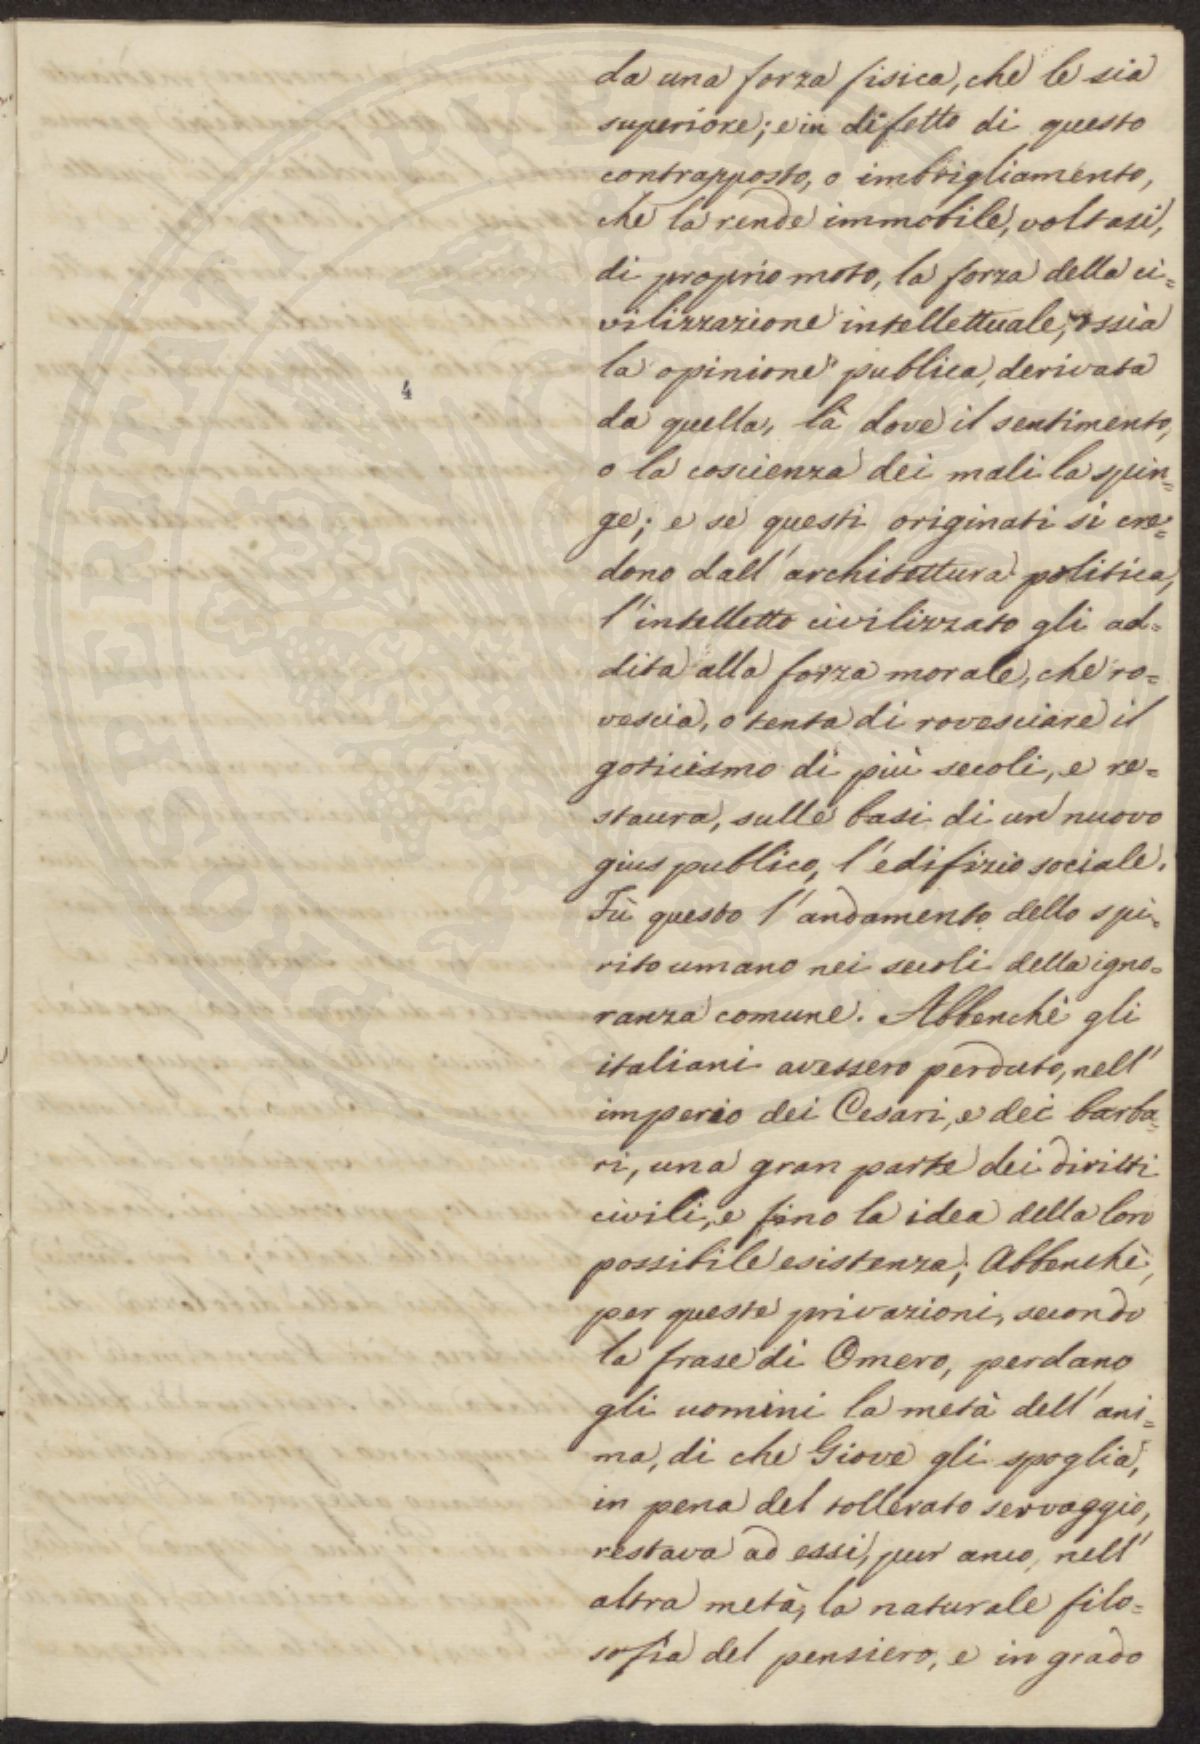 da una forza fisica, che le sia
superiore; e in difetto di questo
contrapposto, o imbrigliamento,
che la rende immobile, voltasi,
di proprio moto, la forza della ci=
vilizzazione intellettuale, ossia
la opinione publica, derivata
4
da quella, là dove il sentimento,
o la coscienza dei mali la spin=
ge; e se questi originati si cre=
dono dall'architettura politica,
l'intelletto civilizzato gli ad=
dita alla forza morale, che ro=
vescia, o tenta di rovesciare il
goticismo di più secoli, e re=
staura, sulle basi di un nuovo
gius publico, l'edifizio sociale.
Fù questo l'andamento dello spi=
rito umano nei secoli della igno=
ranza comune. Abbenchè gli
italiani avessero perduto, nell'
imperio dei Cesari, e dei barba=
ri, una gran parte dei diritti
civili, e fino la idea della loro
possibile esistenza; Abbenchè,
per queste privazioni, secondo
la frase di Omero, perdano
gli uomini la metà dell'ani=
ma, di che Giove gli spoglia,
in pena del tollerato servaggio,
restava ad essi, pur anco, nell'
altra metà, la naturale filo=
sofia del pensiero, e in grado